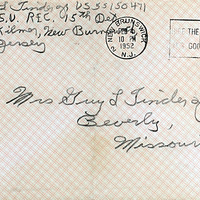 L Tinder US 55150471
S.U. REC. 15th De
Kilmer, New Bruns
Jersey
NEW BRUNSWICK
10 PM
1952
N.J.
2
THE
GOO
Mrs Guy L Tinder
Beverly,
Missour